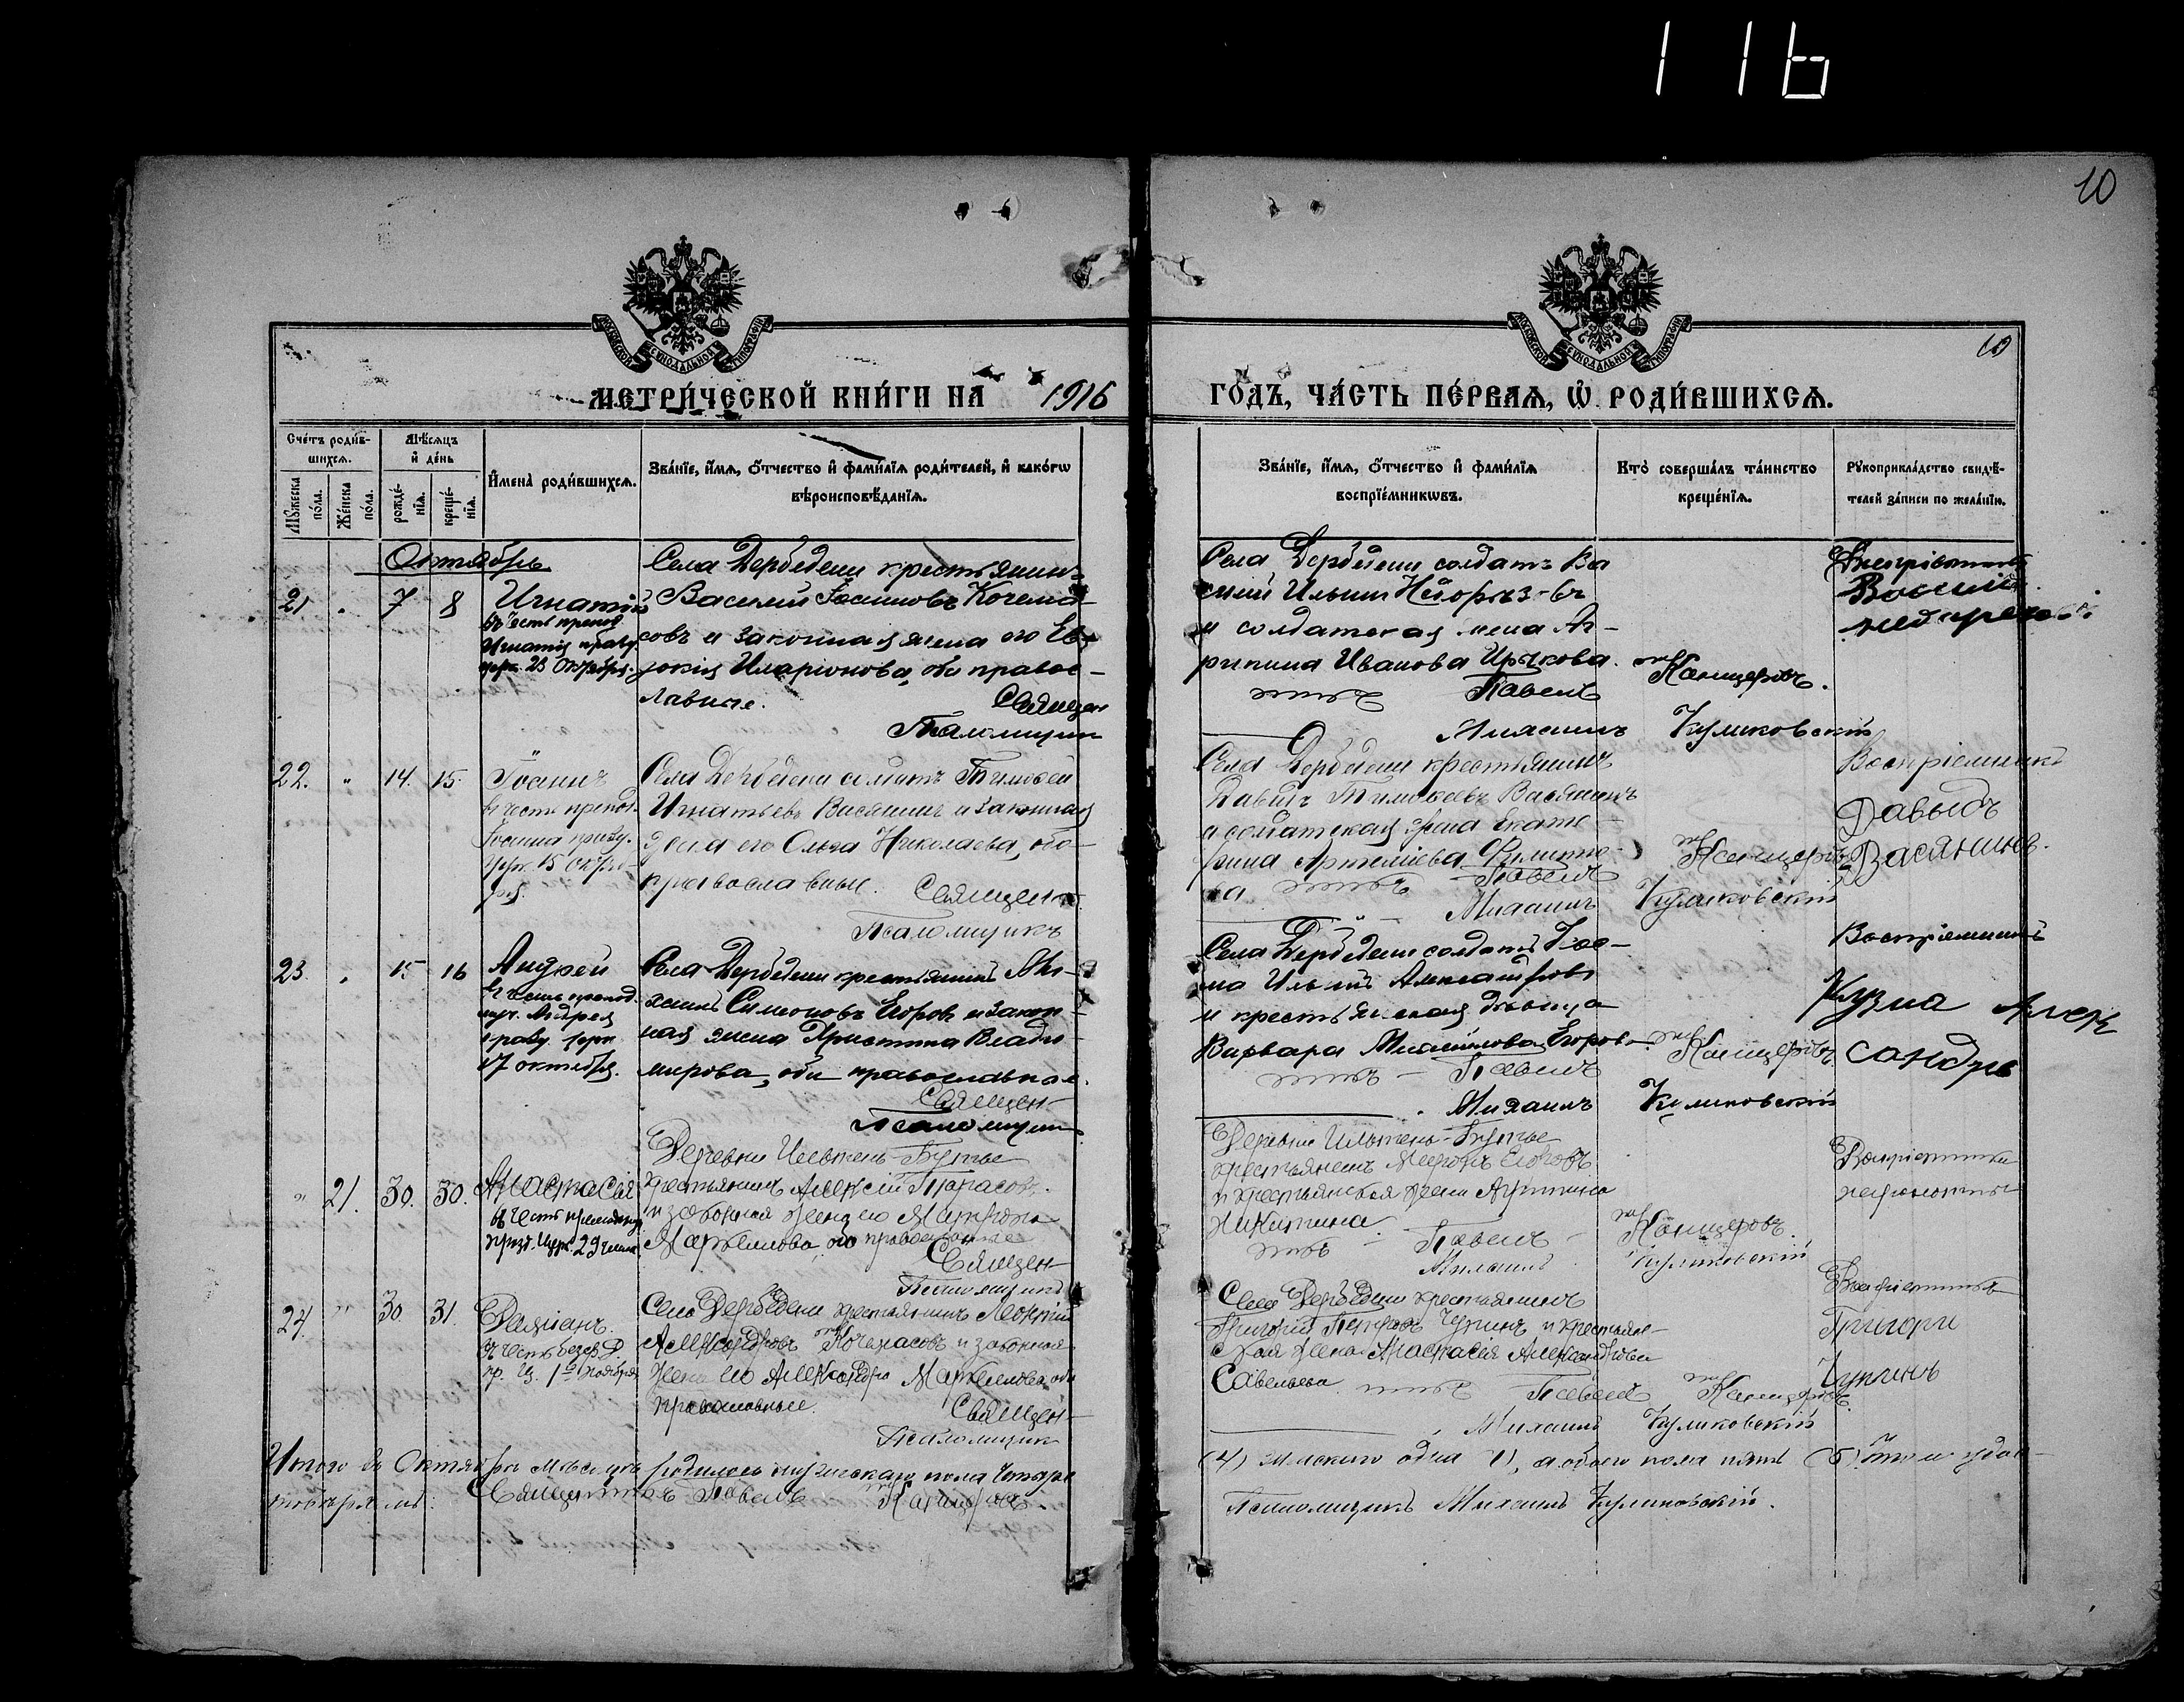 116
10
10
МЕТРИЧЕСКОЙ КНИГИ НА 1916 ГОДЪ, ЧАСТЬ ПЕРВАЯ, Ѡ РОДИВШИХСЯ.
Счетъ родив-
шихся.
Мужеска пола.
Женска пола.
Мѣсяцъ
и день
рожде-
нія.
креще-
нія.
Имена родившихся.
Званіе, имя, отчество и фамилія родителей, и какогѡ
вѣроисповѣданія.
Званіе, имя, отчество и фамилія
воспріемникѡвъ.
Кто совершалъ таинство
крещенія.
Рукоприкладство свидѣ-
телей записи по желанію.
Октябрь
21 " 7 8
Игнатій
въ честь препод
Игнатія празд.
церк. 23 Октября.
Села Дербедени крестьянинъ
Василій Іосифовъ Кочема-
совъ и законная жена его Ев-
докія Иларіонова, оба правос-
лавные.
Священ
Псаломщик
Села Дербедени солдатъ Ва
силий Ильин
и солдатская жена Аг-
рипина Иванова
никъ Павелъ Канцеровъ.
Михаилъ Куликовскій
Воспріемникъ
Василій
22. " 14. 15.
Іоаннъ
въ честь препод.
Іоанна празд.
церк. 15 октяб-
ря.
Села Дербедени солдатъ Тимофей
Игнатьевъ Васянинъ и законная
жена его Ольга Николаева, оба
православные.
Священ
Псаломщикъ
Села Дербедени крестьянинъ
Давидъ Тимофеевъ Васянинъ
и солдатская жена Екате-
рина Артеміева Филипо-
ва
никъ Павелъ Канцеровъ
Михаилъ Куликовскій
Воспріемникъ
Давыдъ
Васянинъ.
23. " 15 16
Андрей
въ честь препод.
муч. Андрея
празд. церк.
17 октября.
Села Дербедени крестьянинъ Ми-
хаилъ Симеоновъ Егоровъ и закон-
ная жена Христина Влади-
мирова, оба православные.
Священ-
Псаломщик
Села Дербедени солдатъ Кос-
ма Ильинъ Александровъ
и крестьянская дѣвица
Варвара Михайлова Егорова
никъ - Павелъ Канцеровъ
Михаилъ Куликовскій
Воспріемникъ
Кузма Алек
сандро
" 21. 30. 30.
Анастасія
въ честь преподобн.
празд. церк. 29 числа
Деревни Ильтень-Бутье
крестьянинъ Алексій Тарасовъ
и законная жена его Матрона
Маркеллова, оба православные
Священ-
Псаломщикъ
Деревни Ильтень-Бутье
крестьянинъ Миронъ Егоровъ
и крестьянская жена
Никитина.
никъ - Павелъ - Канцеровъ.
Михаилъ Куликовскій
Воспріемники
неграмотны
24. " 30. 31.
Даміанъ.
въ честь безср. Д.
пр. Ц. 1го Ноября
Села Дербедени крестьянинъ Леонтій
Александровъ Кочемасовъ и законная
жена его Александра Маркеллова, оба
православные.
Священ-
Псаломщик
Села Дербедени крестьянинъ
Григорій Петровъ Чупинъ и крестьян-
ская жена Анастасія Александрова
Савельева.
никъ Павелъ Канцеровъ.
Михаилъ Куликовскій
Воспріемникъ
Григори
Чупинъ
Итого въ Октябрѣ мѣсяцѣ родилось мужескаго пола четыре (4) женскаго одна 1), а обоего пола пять (5). Что и удос-
товѣряемъ: Священникъ Павелъ Канцеровъ Псаломщикъ Михаилъ Куликовскій.